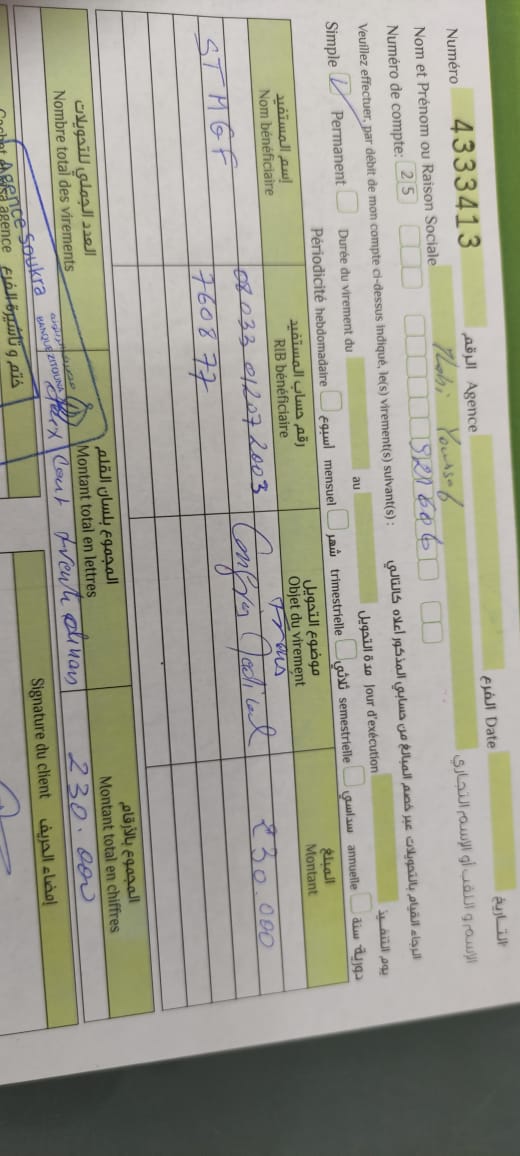 Numéro 4333413 الرقم Agence الفرع Date التاريخ
Nom et Prénom ou Raison Sociale Youssef الإسم و اللقب أو الإسم التجاري
Numéro de compte: 25 921606
Veuillez effectuer, par débit de mon compte ci-dessus indiqué, le(s) virement(s) suivant(s) : الرجاء القيام بالتحويلات عبر خصم المبالغ من حسابي المذكور أعلاه كالتالي
Simple Permanent Durée du virement du au مدة التحويل Jour d'exécution يوم التنفيذ
Périodicité hebdomadaire أسبوع mensuel شهر trimestrielle ثلاثي semestrielle سداسي annuelle سنة دورية
إسم المستفيد رقم حساب المستفيد موضوع التحويل المبلغ
Nom bénéficiaire RIB bénéficiaire Objet du virement Montant
Frais
08033 01207 2003 230.000
STMGF 760877
العدد الجملي للتحويلات المجموع بلسان القلم المجموع بالأرقام
Nombre total des virements Montant total en lettres Montant total en chiffres
BANQUE ZITOUNA Cent 230.000
Agence Soukra
ختم و تأشيرة الفرع Signature du client إمضاء الحريف